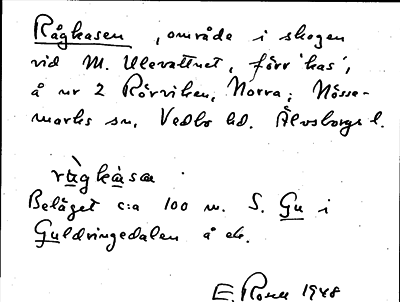 Rågkasen, område i skogen
vid M. Ulevattnet, förr 'kas',
å nr 2 Rörviken, Norra; Nösse-
marks sn, Vedbo hd. Älvsborgs l.
rågkasa
Beläget c:a 100 m. S. Gu i
Guldringedalen å ek.
E. Rosell 1948